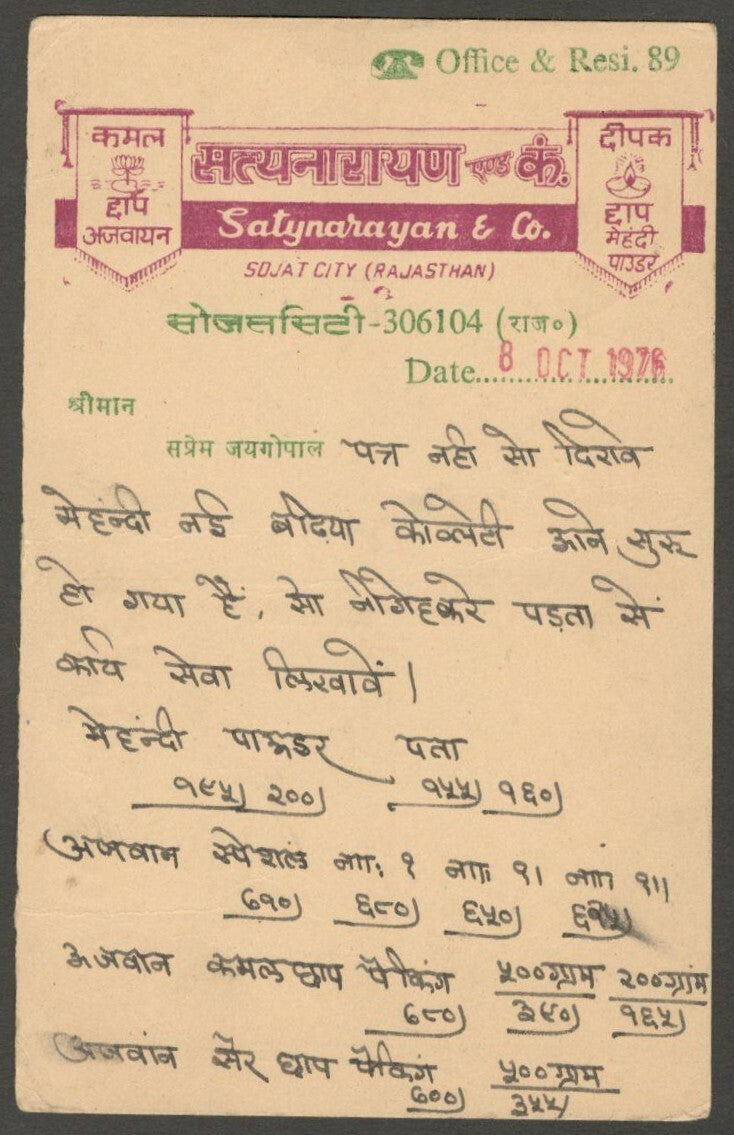 Office & Resi. 89
कमल
छाप
अजवायन
सत्यनारायण एण्ड कं.
Satynarayan & Co.
SOJAT CITY (RAJASTHAN)
दीपक
छाप
मेहंदी
पाउडर
सोजतसिटी-306104 (राज०)
Date 8 OCT 1976
श्रीमान
सप्रेम जयगोपाल पत्र नही सो दिरावे
मेहन्दी नई बढिया कोव्लेटी आने सुरू
हो गया हैं, सो पड़ता से
कार्य सेवा लिखावें।
मेहन्दी पाऊडर पता
१९५) २००) १५५) १६०)
अजवान स्पेशल नाः १ नाः १। नाः १॥
७१०) ६८०) ६५०)
अजवान कमल छाप पैकिंग ५००ग्राम २००ग्राम
७८०) ३९०) १६५)
अजवांन सेर छाप पैकिंग ५००ग्राम
७००) ३५५)